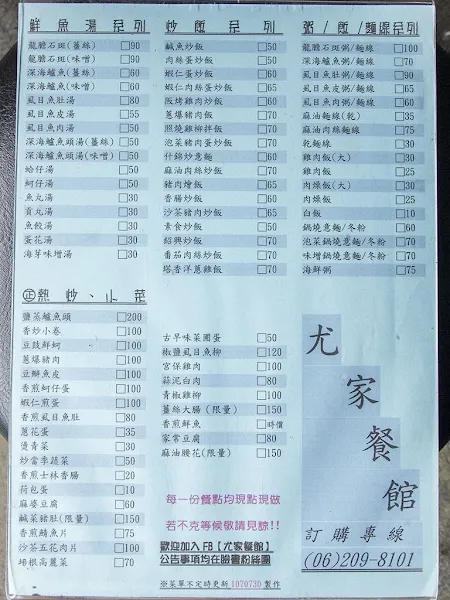 鮮魚湯系列
龍膽石斑(薑絲) □90
龍膽石斑(味噌) □90
深海鱸魚(薑絲) □60
深海鱸魚(味噌) □60
虱目魚肚湯 □80
虱目魚皮湯 □55
虱目魚肉湯 □50
深海鱸魚頭湯(薑絲) □50
深海鱸魚頭湯(味噌) □50
蛤仔湯 □50
蚵仔湯 □50
魚丸湯 □30
貢丸湯 □30
魚餃湯 □30
蛋花湯 □30
海芽味增湯 □30
炒飯系列
鹹魚炒飯 □50
肉絲蛋炒飯 □50
蝦仁蛋炒飯 □60
蝦仁肉絲蛋炒飯 □65
醃烤雞肉炒飯 □60
蔥爆豬肉飯 □70
照燒雞柳拌飯 □70
泡菜豬肉蛋炒飯 □70
什錦炒意麵 □60
麻油肉絲炒飯 □60
豬肉燴飯 □65
香腸炒飯 □60
沙茶豬肉炒飯 □65
素食炒飯 □50
紹興炒飯 □70
番茄肉絲炒飯 □70
塔香洋蔥雞飯 □70
粥/飯/麵線系列
龍膽石斑粥/麵線 □100
深海鱸魚粥/麵線 □70
虱目魚肚粥/麵線 □90
虱目魚皮粥/麵線 □65
虱目魚肉粥/麵線 □60
麻油麵線(乾) □35
麻油肉絲麵線 □75
乾麵線 □30
雞肉飯(大) □30
雞肉飯 □25
肉燥飯(大) □30
肉燥飯 □25
白飯 □10
鍋燒意麵/冬粉 □60
泡菜鍋燒意麵/冬粉 □70
味增鍋燒意麵/冬粉 □70
海鮮粥 □75
㊣熱炒、小菜
鹽蒸鱸魚頭 □200
香炒小卷 □100
豆豉鮮蚵 □100
蔥爆豬肉 □100
豆瓣魚皮 □100
香煎蚵仔蛋 □100
蝦仁煎蛋 □100
香煎虱目魚肚 □80
蔥花蛋 □35
燙青菜 □30
炒當季蔬菜 □50
香煎士林香腸 □20
荷包蛋 □10
麻婆豆腐 □60
鹹菜豬肚(限量) □150
香煎鯖魚片 □75
沙茶五花肉片 □100
培根高麗菜 □70
古早味菜圃蛋 □50
椒鹽虱目魚柳 □120
宮保雞肉 □100
蒜泥白肉 □80
青椒雞柳 □100
薑絲大腸(限量) □150
香煎鮮魚 □時價
家常豆腐 □80
麻油腰花(限量) □150
每一份餐點均現點現做
若不克等候敬請見諒!!
歡迎加入FB【尤家餐館】
公告事項均在臉書粉絲團
※菜單不定時更新1070730製作
尤家餐館
訂購專線
(06)209-8101